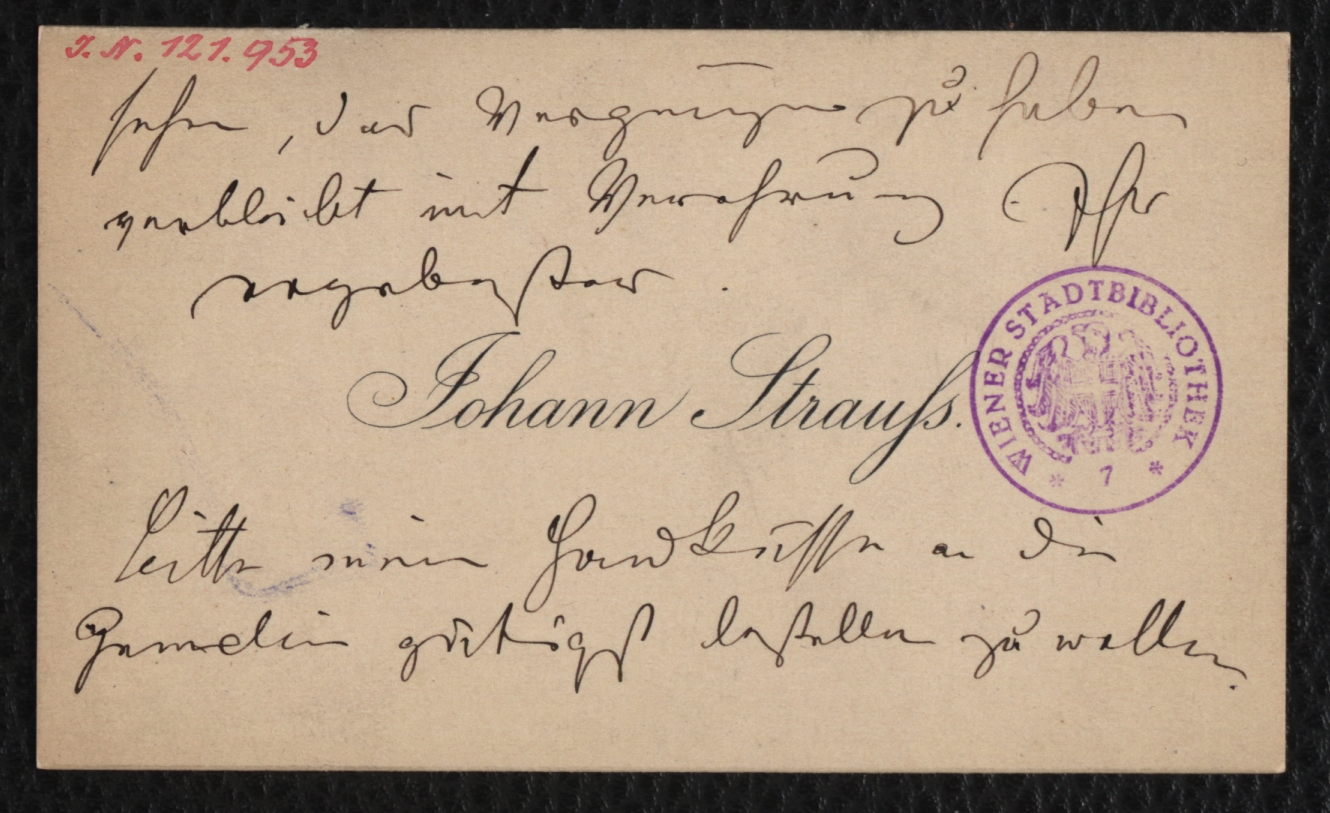 I. N. 121.953
sehen, das Vergnügen zu haben
verbleibt mit Verehrung Ihr
ergebenster
Johann Strauss.
WIENER STADTBIBLIOTHEK
* 7 *
bitte meine Handküsse an die
Gemalin gütigst bestellen zu wollen.